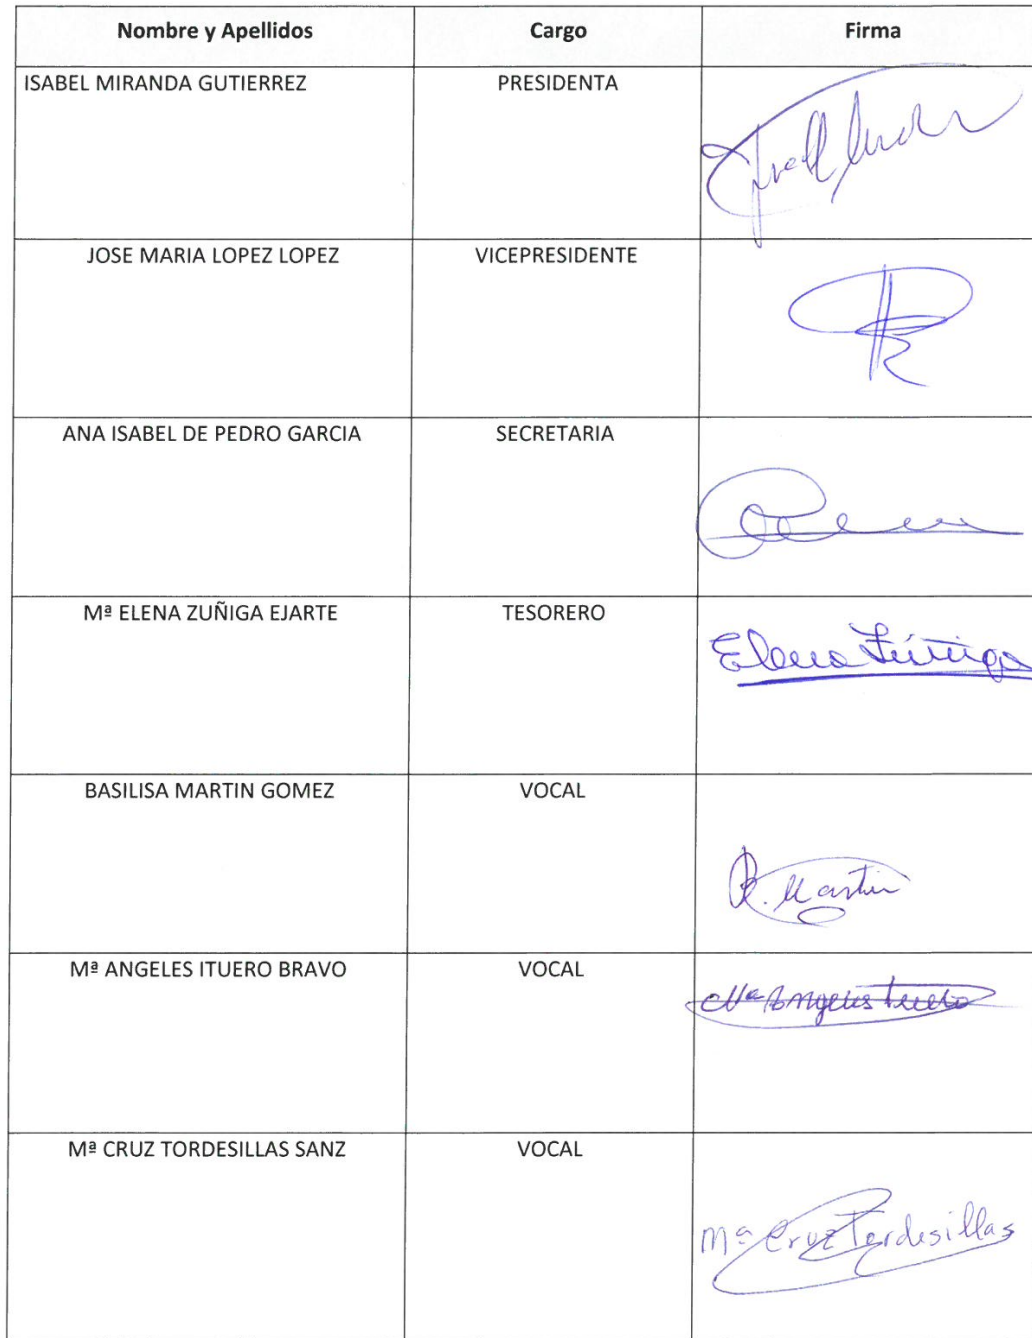 Nombre y Apellidos Cargo Firma
ISABEL MIRANDA GUTIERREZ PRESIDENTA
JOSE MARIA LOPEZ LOPEZ VICEPRESIDENTE
ANA ISABEL DE PEDRO GARCIA SECRETARIA
Mª ELENA ZUÑIGA EJARTE TESORERO
Elena Zúñiga
BASILISA MARTIN GOMEZ VOCAL
B. Martin
Mª ANGELES ITUERO BRAVO VOCAL
Mª Angeles Ituero
Mª CRUZ TORDESILLAS SANZ VOCAL
Mª Cruz Tordesillas